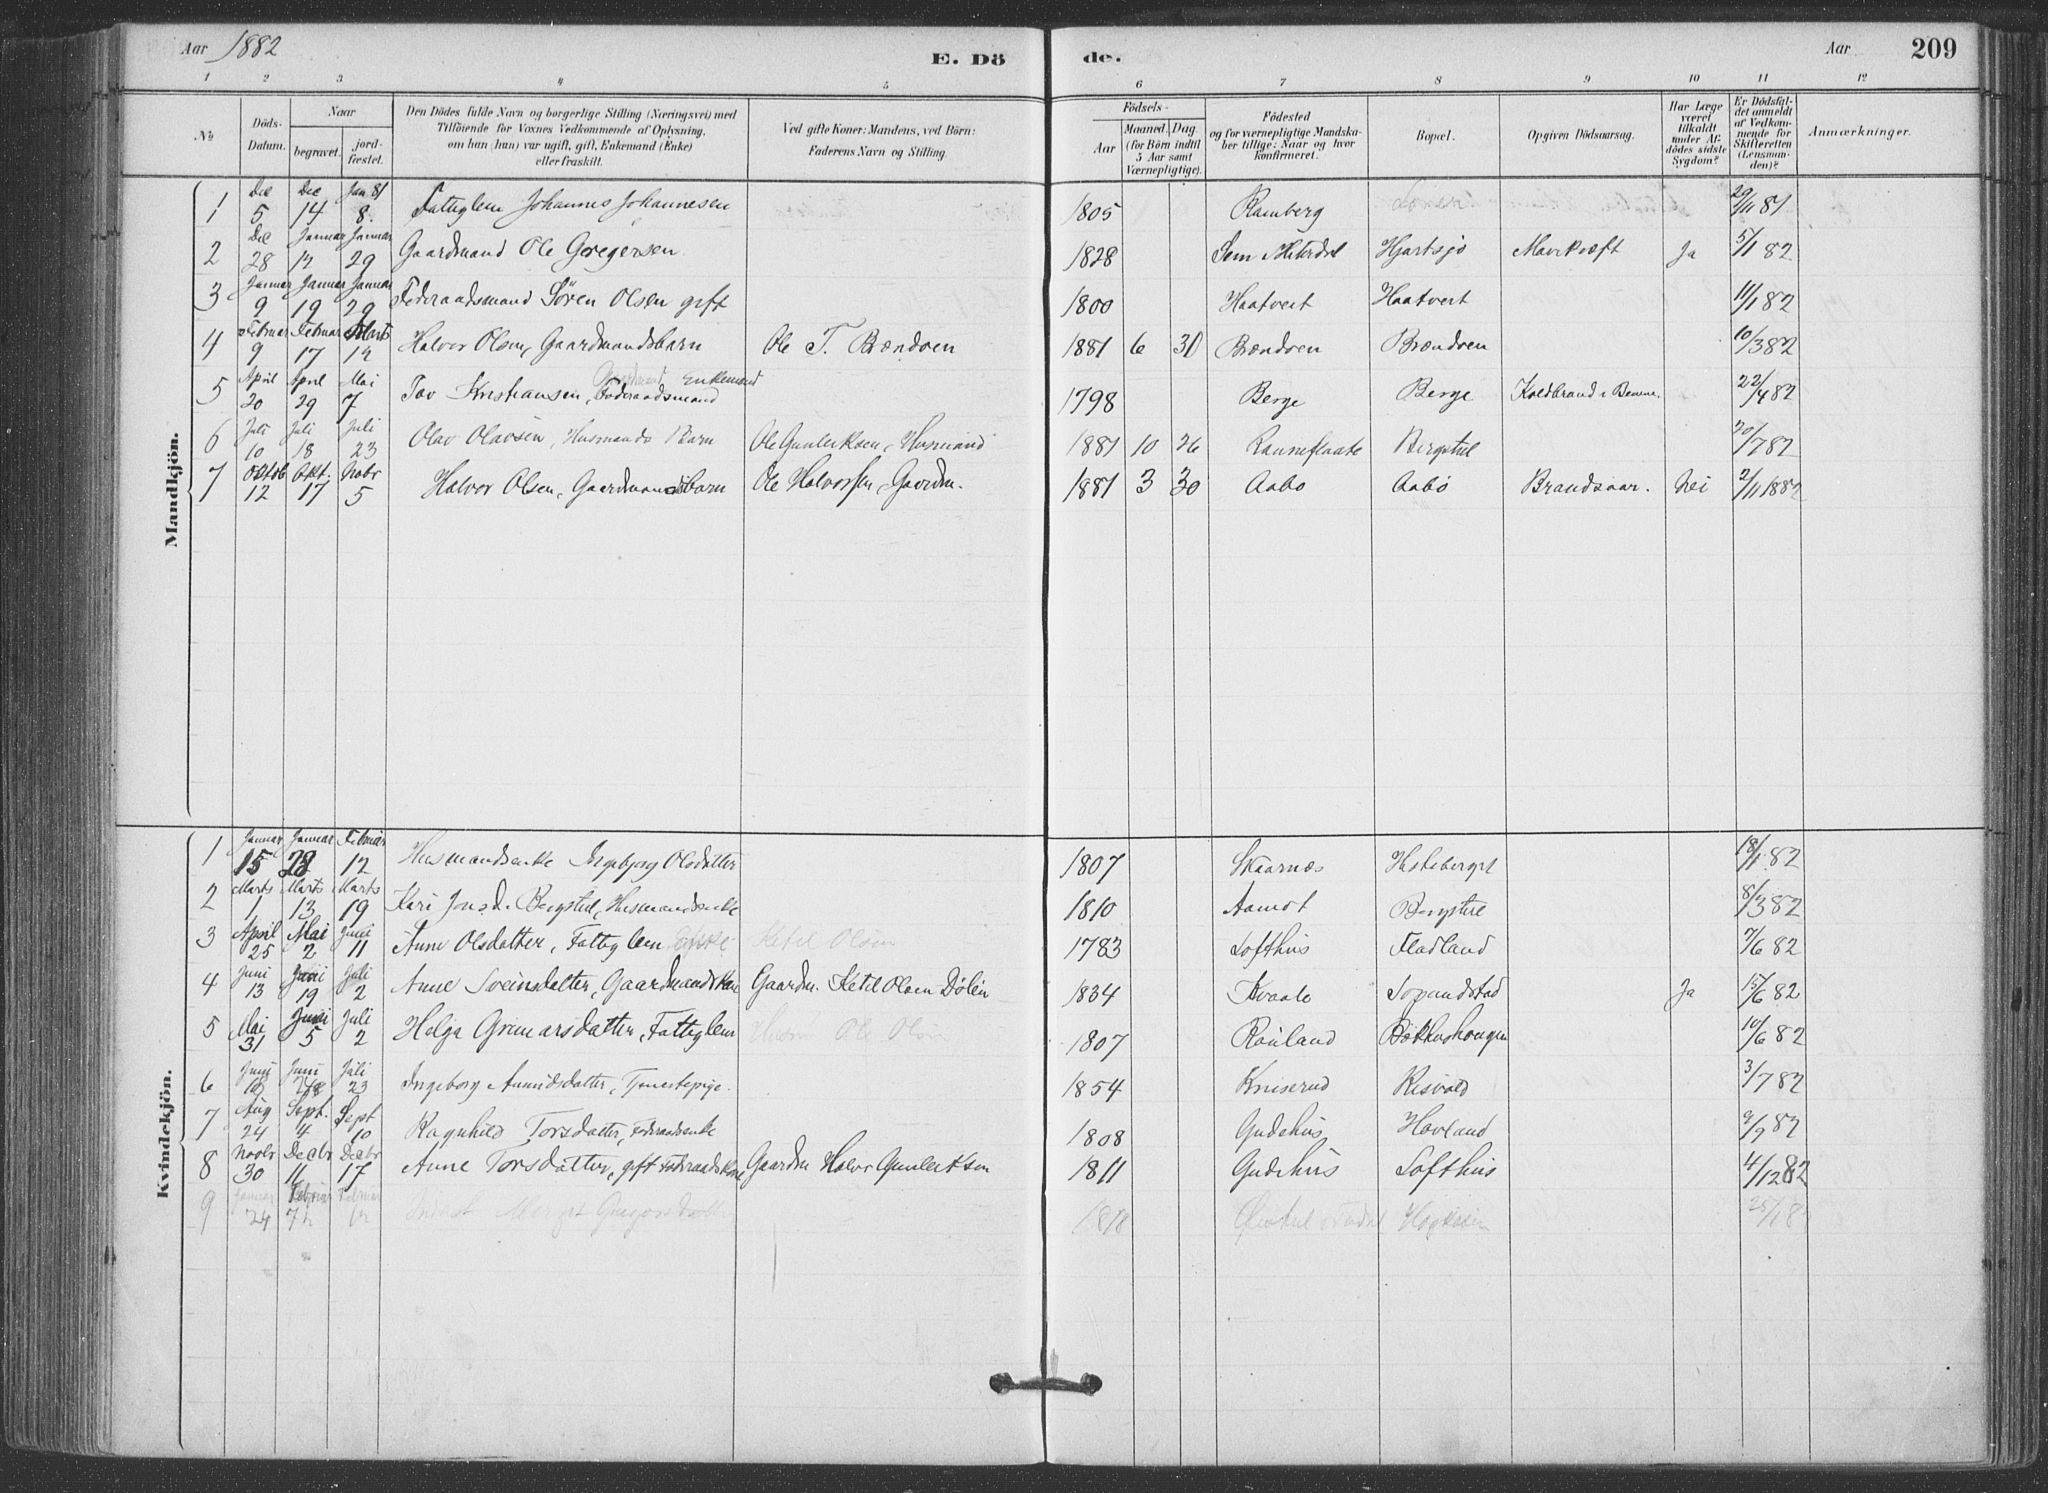 Aar 1882 E. Dö de. Aar 209
1 2 3 4 5 6 7 8 9 10 11 12
№ Döds-Datum. Naar begravet. jordfæstet. Den Dödes fulde Navn og borgerlige Stilling (Næringsvei) med Tilföiende for Voxnes Vedkommende af Oplysning, om han (hun) var ugift, gift, Enkemand (Enke) eller fraskilt. Ved gifte Koner: Mandens, ved Börn: Faderens Navn og Stilling. Födsels- Aar Maaned. Dag (for Börn indtil 5 Aar samt Værnepligtige). Födested og for værnepligtige Mandskaber tillige: Naar og hvor konfirmeret. Bopæl. Opgiven Dödsaarsag. Har Læge været tilkaldt under Afdödes sidste Sygdom? Er Dödsfaldet anmeldt af Vedkommende for Skifteretten (Lensmanden)? Anmærkninger.
Mandkjön.
1 Dec 5 Dec 14 Jan 81 8. Fattiglem Johannes Johannesen 1805 Ramberg 29/11 81
2 Dec 28 Januar 14 Januar 29 Gaardmand Ole Gregersen 1828 Sem i Hiterdal Hjartsjø Mavekræft Ja 5/1 82
3 Januar 9 Januar 19 Januar 29 Føderaadsmand Sören Olsen gift 1800 Haatveit Haatveit 11/1 82
4 Februar 9 Februar 17 Marts 12 Halvor Olsen, Gaardmandsbarn Ole T. Brændoen 1881 6 31 Brændoen Brændoen 10/3 82
5 April 20 April 29 Mai 7 Tov Kristiansen, Føderaadsmand Enkemand 1798 Berge Berge Koldbrand i Benene. 22/4 82
6 Juli 10 Juli 18 Juli 23 Olav Olavsen, Husmands Barn Ole Gunleiksen, Husmand 1881 10 26 Ranneflaate Bergstul 20/7 82
7 Oktob 12 Okt. 17 Novbr 5 Halvor Olsen, Gaardmandsbarn Ole Halvorsen, Gaardm. 1881 3 30 Aabø Aabø Brandsaar. Nei 2/11 1882
Kvindekjön.
1 Januar 15 Januar 28 Februar 12 Husmandsenke Ingebjorg Olsdatter 1807 Skaarnes Hasteberget 18/1 82
2 Marts 1 Marts 13 Marts 19 Kari Jonsd. Bergstul, Husmandsenke 1810 Aamot Bergstul 8/3 82
3 April 25 Mai 2 Juni 11 Anne Olsdatter, Fattiglem Enke Ketil Olsen 1783 Lofthus Fladland 7/6 82
4 Juni 13 Juni 19 Juli 2 Anne Sveinsdatter, Gaardmandskone Gaardm. Ketil Olsen Dölen 1834 Kvaale Ja 15/6 82
5 Mai 31 Juni 5 Juli 2 Helga Grimarsdatter, Fattiglem Ole Olsen 1807 Rauland Bökkushaugen 10/6 82
6 Juni Juni Juli 23 Ingeborg Aamundsdatter, Tjenestepige. 1854 Kniserud Risvold 3/7 82
7 Aug 24 Sept. 4 Sept 10 Ragnhild Torsdatter, Føderaadsenke 1808 Gudehus Hovland 2/9 82
8 Novbr 30 Decbr 11 Decbr 17 Anne Torsdatter, gift Føderaadskone Gaardm Halvor Gunleiksen 1811 Gudehus Lofthus 4/12 82
9 Januar 24 Februar 7 Februar 12 Inderst Margit Gregarsdatter 1818 25/1 8